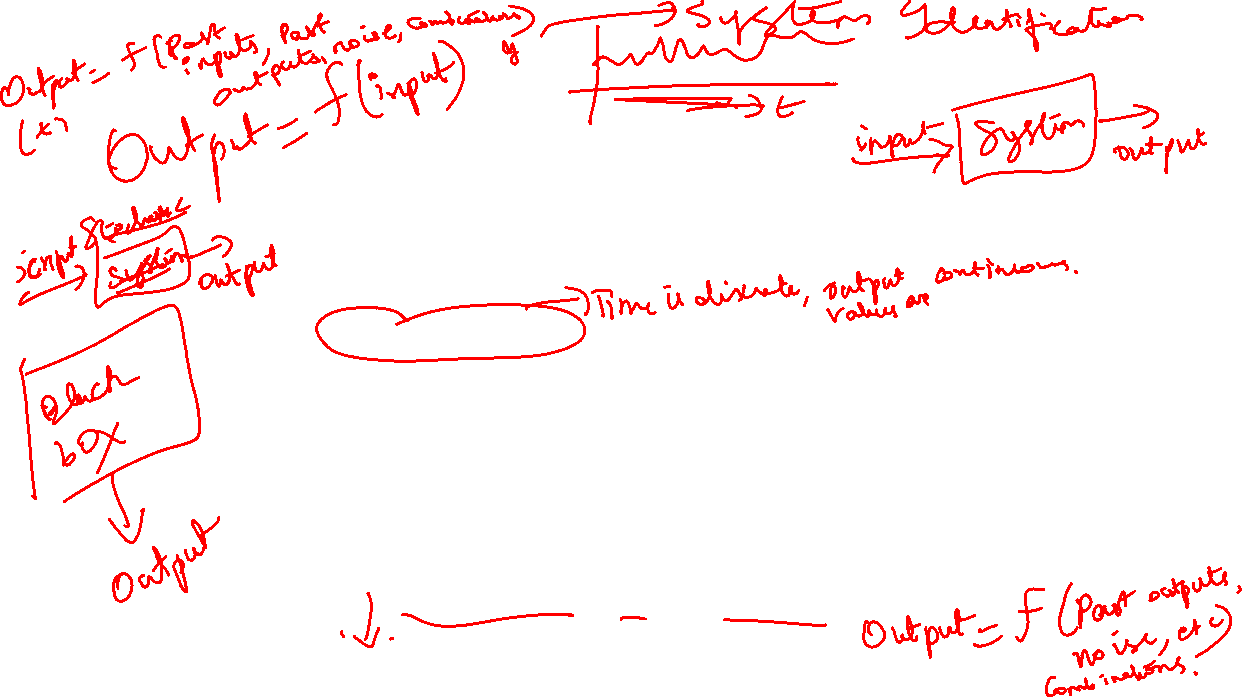 System Identification
Output = f(Past
inputs, Past
outputs, noise, combinations)
(t)
Output = f(input)
y
t
input
System
output
input
Stochastic
System
output
Time is discrete, output
values are continuous.
Black
box
Output
Output = f(Past outputs,
noise, etc)
Combinations.